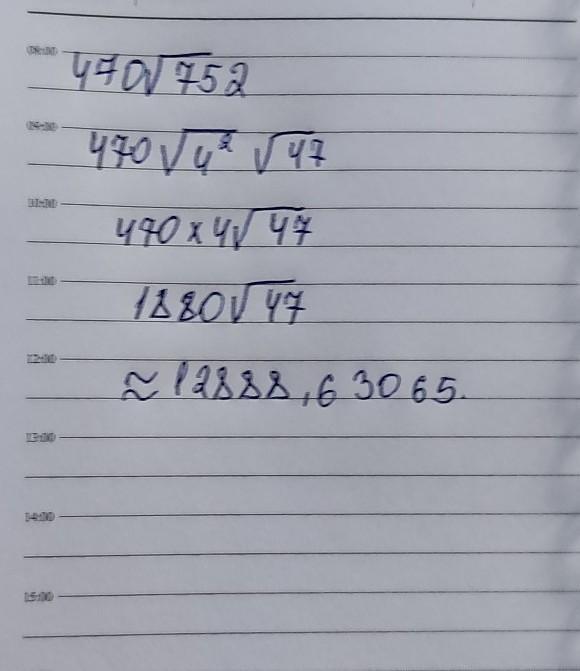 08:00
470√752
09:00
470√4² √47
10:00
470 x 4√47
11:00
1880√47
12:00
≈ 12888,63065.
13:00
14:00
15:00